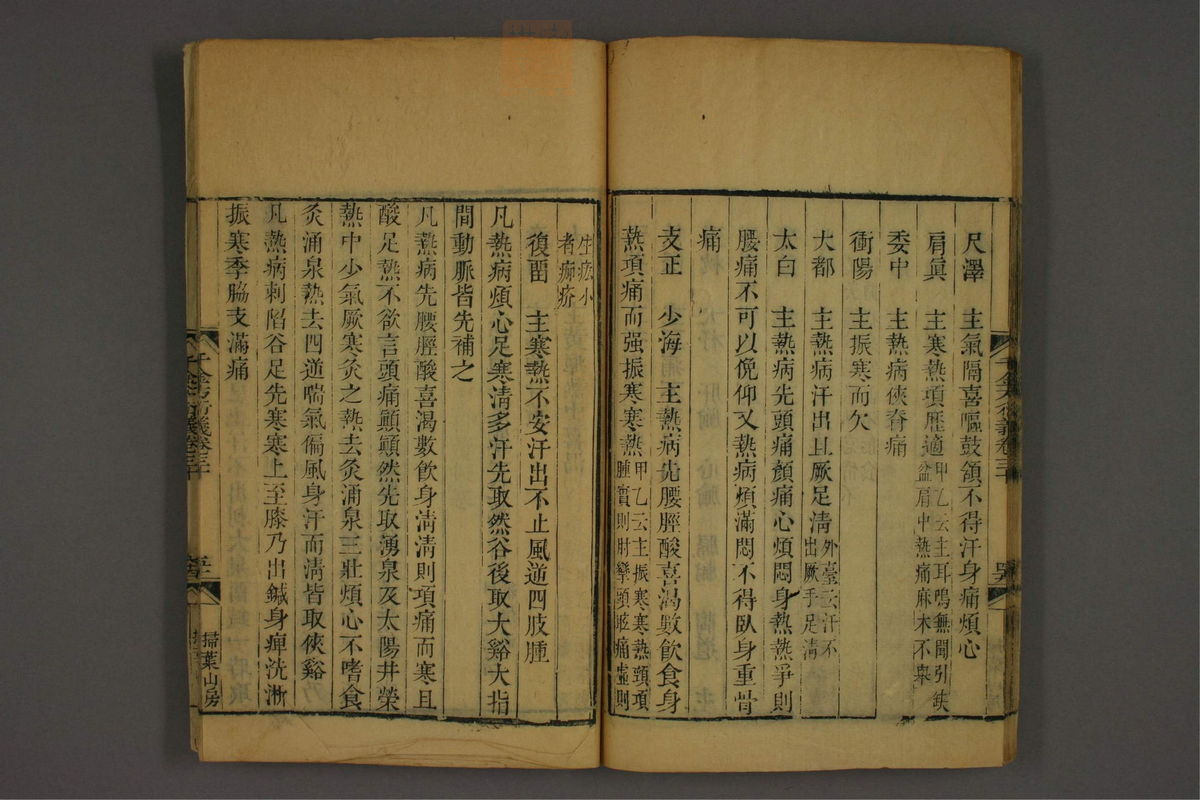 尺澤　主氣隔喜嘔鼓頷不得汗身痛煩心
肩眞　主寒熱項歷適甲乙云主耳鳴無聞引缺盆肩中熱痛麻木不舉
委中　主熱病俠脊痛
衝陽　主振寒而欠
大都　主熱病汗出且厥足淸外臺云汗不出厥手足淸
太白　主熱病先頭痛顏痛心煩悶身熱熱爭則
腰痛不可以俛仰又熱病煩滿悶不得臥身重骨
痛
支正　少海　主熱病先腰脛酸喜渴數飲食身
熱項痛而强振寒寒熱甲乙云主振寒寒熱頸項腫實則肘攣頭眩痛虛則
生疣小者痂疥
復畱　主寒熱不安汗出不止風逆四肢腫
凡熱病煩心足寒淸多汗先取然谷後取大谿大指
間動脈皆先補之
凡熱病先腰脛酸喜渴數飲身淸淸則項痛而寒且
酸足熱不欲言頭痛顚顚然先取湧泉及太陽井榮
熱中少氣厥寒灸之熱去灸涌泉三壯煩心不嗜食
灸涌泉熱去四逆喘氣偏風身汗而淸皆取俠谿
凡熱病刺陷谷足先寒寒上至膝乃出鍼身痺洗淅
振寒季脇支滿痛
千金方衍義卷三十
掃葉山房